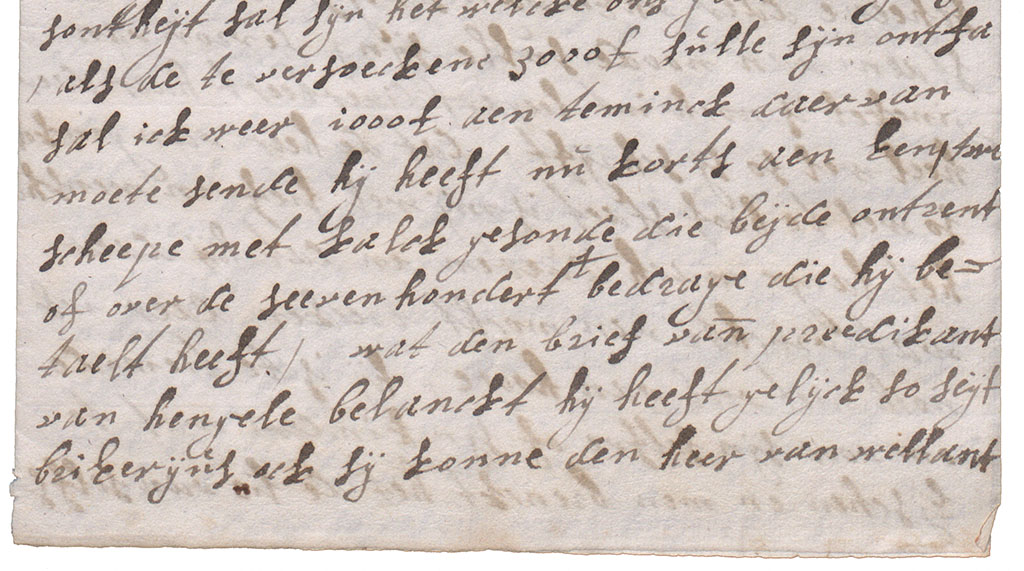 sontheijt sal sijn het welcke ons
als de te versoeckene 3000f sulle sijn ontfa
sal ick weer 1000f aen teminck daer van
moete sende hij heeft nu korts aen
scheepe met kalck gesonde die beijde ontrent
of over de seevenhondert f bedrage die hij be=
taelt heeft / wat den brief van predikant
van hengele belanckt hij heeft gelijck so seijt
ock sij konne den heer van wellant